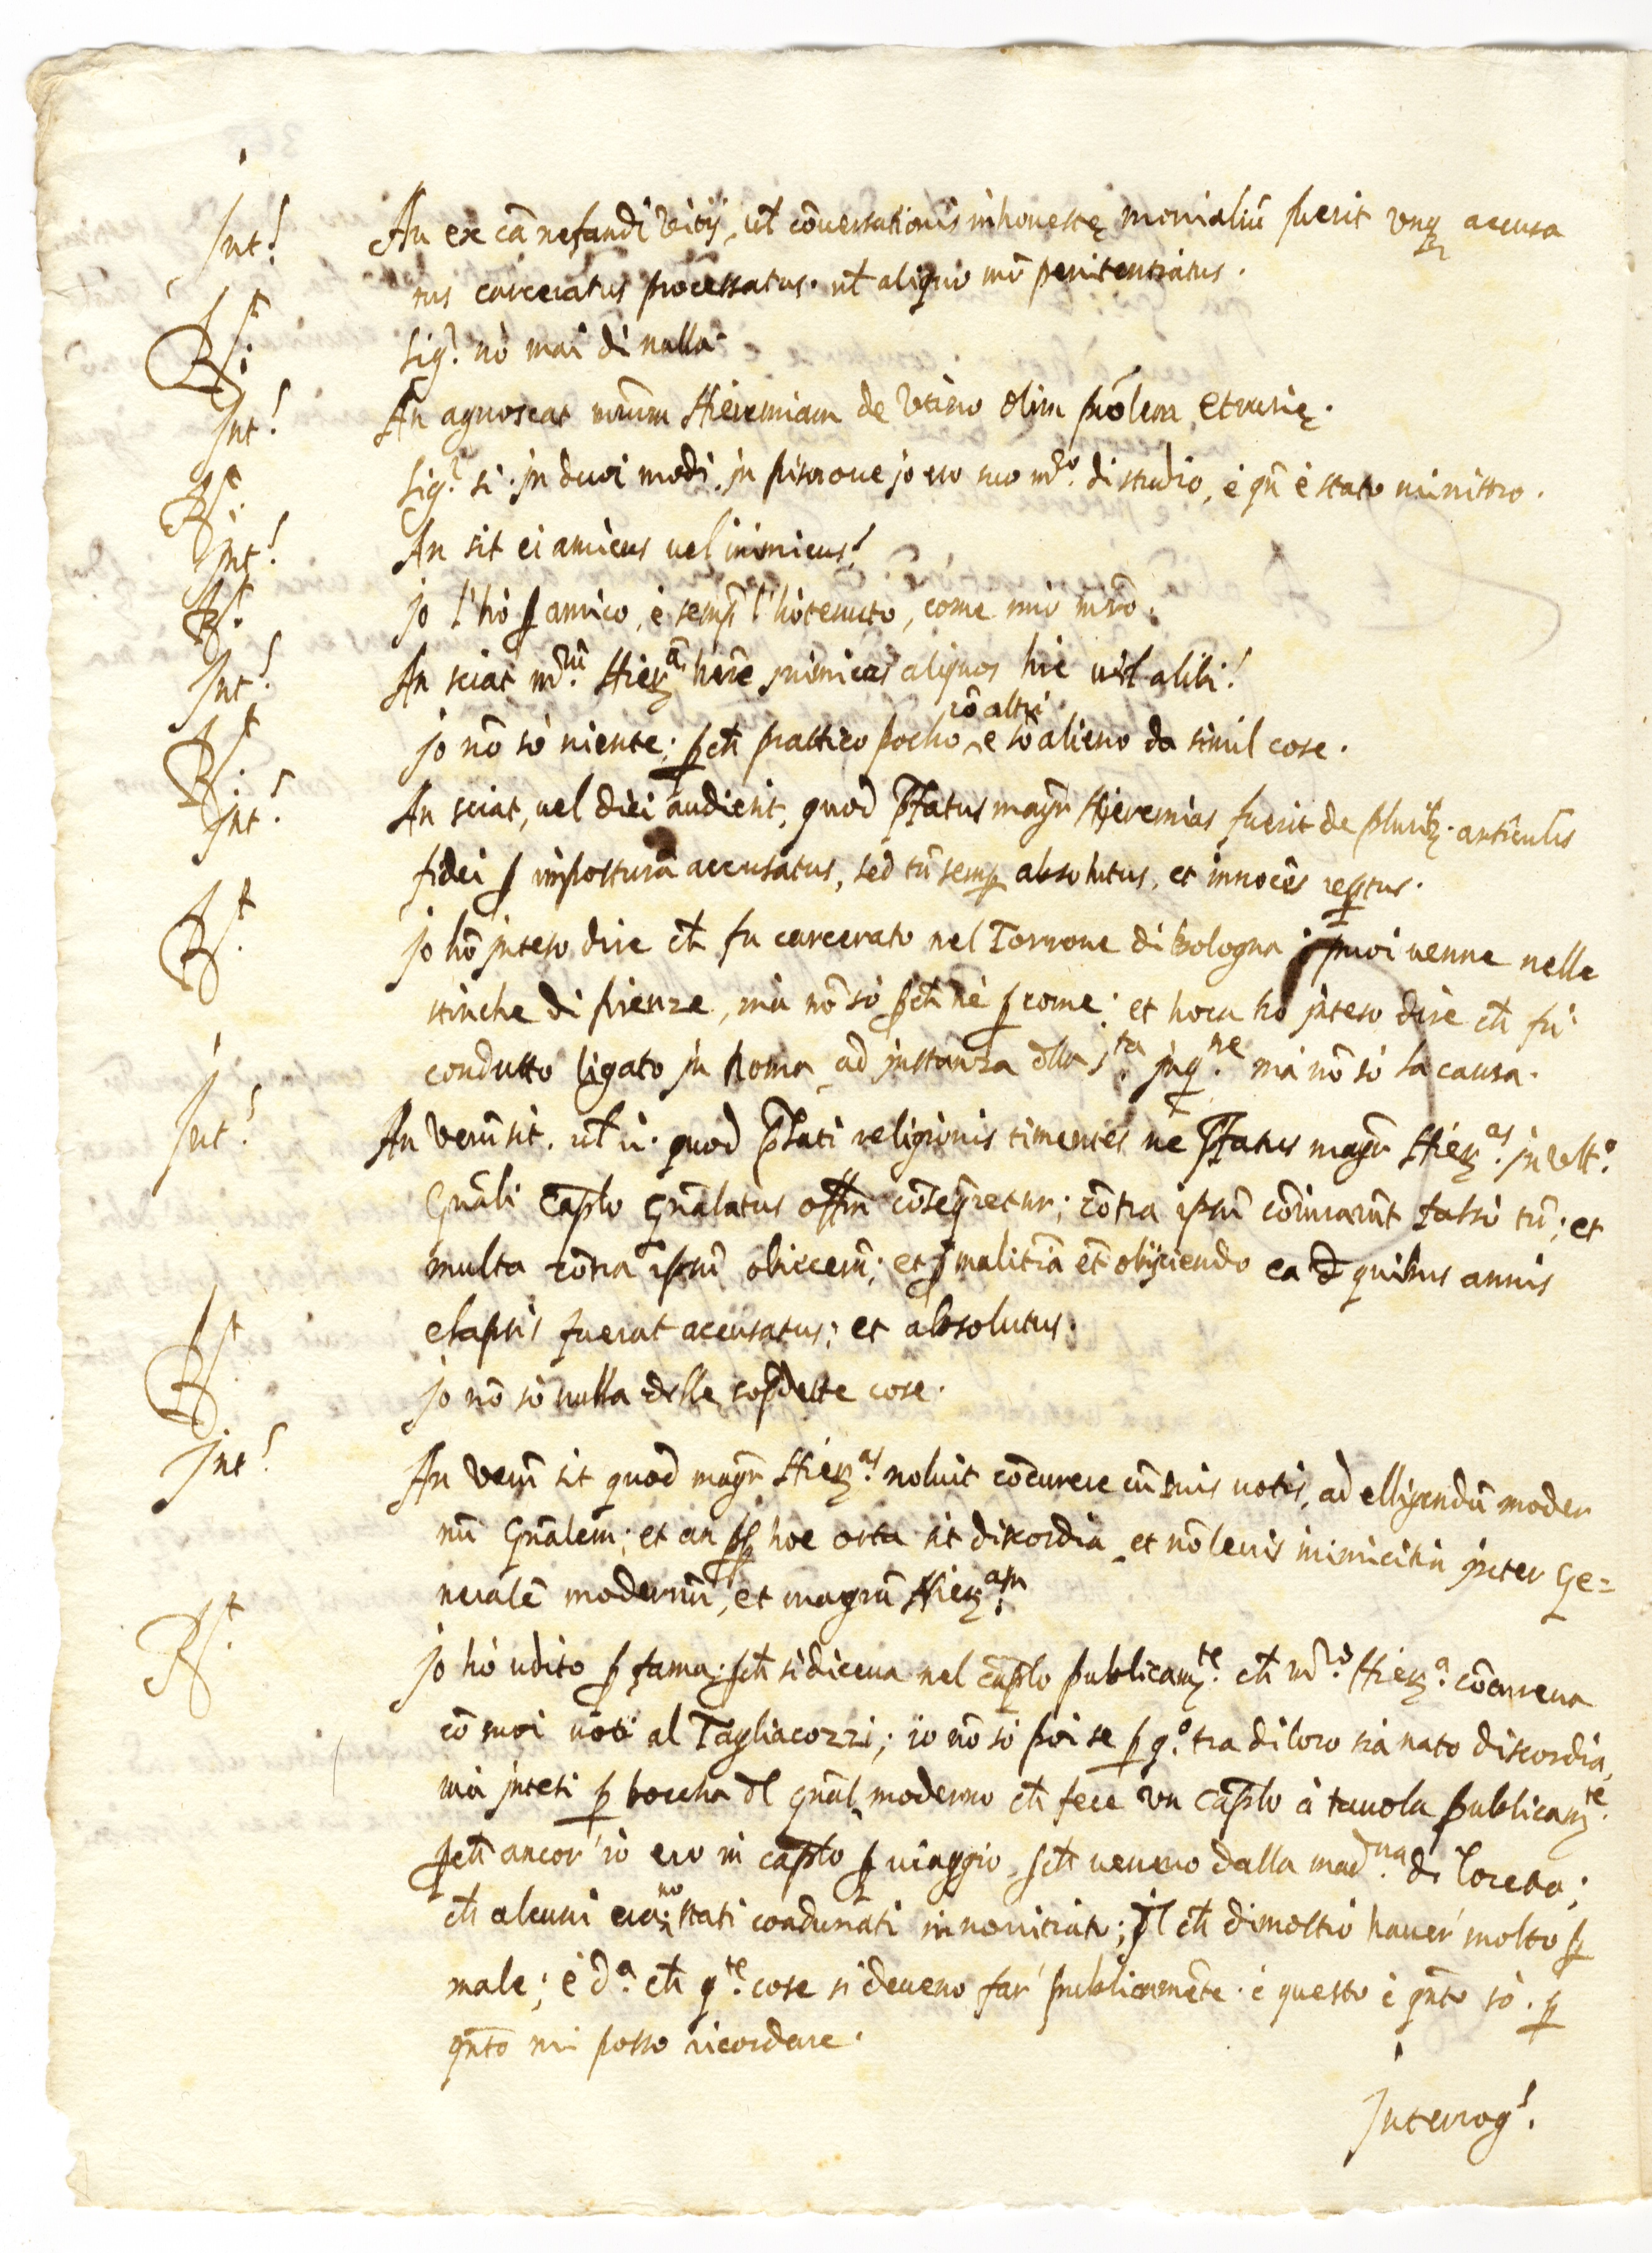 Int! An ex cā nefandi vitij, ul̄ cōversationis inhonestę monialiū fuerit unq̨ accusa
tus carceratus processatus. ul̄ aliquo mō penitentiatus.
R.t Sig.r nò mai di nulla.
Int! An agnoscat mrūm Hieremiam de Utino olim prōlem Etrurię.
R.t Sig.r si. in duoi modi. in pisa oue jo ero suo m̄ro. di studio, è qn̄ è stato ministro.
Int! An sit ei amicus uel inimicus!
R.t jo l'hò ꝑ amico, è semp̄ l'hò tenuto, come mio mr̄o.
Int! An sciat m̄rū. Hierą̄ hēre inimicos aliquos hic uel alibi!
cō altri
R.t jo nō sò niente; ꝑch̄ prattico pocho, e sō alieno da simil cose.
Int! An sciat, uel dici audierit, quod p̄fatus magr̄ Hieremias fuerit de plurib; articulis
fidei ꝑ imposturā accusatus, sed tn̄ semꝑ absolutus, et innocēs reꝑtus.
R.t jo hō inteso dire ch̄ fu carcerato nel Torrone di Bologna; puoi uenne nelle
stinche di firenze, mà nō sò ꝑch̄ nè ꝑ come; et hora hò inteso dire ch̄ fù
condutto ligato in Roma, ad instanza dlla S.ta inq.ne mà nō sò la causa.
Int! An verū sit. ul̄ ñ. quod p̄lati religionis timentes ne p̄fatus magr̄ Hierę.as in ult.o
Gn̄ali Caplo gn̄alatus offm̄ cōseq̄retur; cōtra ipsū cōiurarūt falsò tn̄; et
multa cōtra ipsū obiicerū̄; et ꝑ malitiā et̄ obijciendo ea d̄ quibus annis
elapsis fuerat accusatus; et absolutus.
R.t jo nō sò nulla delle sop̄dette cose.
Int! An verū sit quod magr̄ Hierę.as noluit cōcurrere cū suis uotis, ad elligendū moder
nū Gn̄alem; et an ꝓp hoc orta sit discordia, et nō leuis inimicitia inter Ge=
neralē modernū, et magrū̄ Hierę.am
R.t jo hò udito ꝑ fama; ꝑch̄ si diceua nel caplo publicamte. ch̄ m̄ro Hierę.a cōcurreua
cō suoi uoti al Tagliacozzi; io nō sò poi se ꝑ q.o tra di loro sia nato discordia,
mà intesi ꝑ boccha dl gn̄al, moderno ch̄ fece un Caplo à tauola publicamte.
ꝑch̄ ancor'io ero in caplo ꝑ uiaggio, ꝑch̄ uenuo dalla mad.na di loreto;
ch̄ alcuni era.no stati coadunati in nouitiato; il ch̄ dimostrò hauer' molto ꝑ
male; è d.a ch̄ q.te cose si deueno far' publicamēte. è questo è qn̄to sò. ꝑ
qn̄to mi posso ricordare.
Interrog!